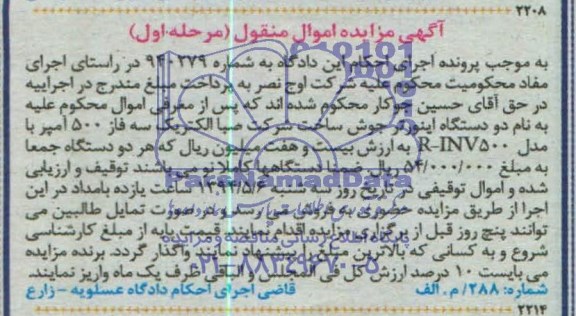 ۲۲۰۸
آگهی مزایده اموال منقول (مرحله اول)
به موجب پرونده اجرای احکام این دادگاه به شماره ۹۴۰۲۷۹ در راستای اجرای
مفاد محکومیت محکوم علیه شرکت اوج نصر به پرداخت مبلغ مندرج در اجراییه
در حق آقای حسین جوکار محکوم شده اند که پس از معرفی اموال محکوم علیه
به نام دو دستگاه اینورتر جوش ساخت شرکت صبا الکتریک سه فاز ۵۰۰ آمپر با
مدل R-INV۵۰۰ به ارزش بیست و هفت میلیون ریال که هر دو دستگاه جمعا
به مبلغ ۵۴/۰۰۰/۰۰۰ ریال ضمنا دستگاهها کاملا نو می باشند توقیف و ارزیابی
شده و اموال توقیفی در تاریخ روز سه شنبه ۱۳۹۴/۵/۶ ساعت یازده بامداد در این
اجرا از طریق مزایده حضوری به فروش می رسد و در صورت تمایل طالبین می
توانند پنج روز قبل از برگزاری مزایده اقدام نمایند قیمت پایه از مبلغ کارشناسی
شروع و به کسانی که بالاترین مبلغ را پیشنهاد نمایند واگذار گردد. برنده مزایده
می بایست ۱۰ درصد ارزش کل فی المجلس و الباقی ظرف یک ماه واریز نمایند.
شماره: ۲۸۸/م. الف قاضی اجرای احکام دادگاه عسلویه - زارع
۲۲۱۴
ParsNamadData
پایگاه اطلاع رسانی مناقصه و مزایده